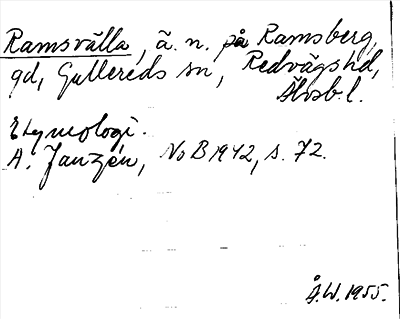 Ramsvälla, ä. n. på Ramsberg,
gd, Gullereds sn, Redvägs hd,
Älvsb. l.
Etymologi.
A. Janzén, NoB 1942, s. 72.
Å.W. 1955.